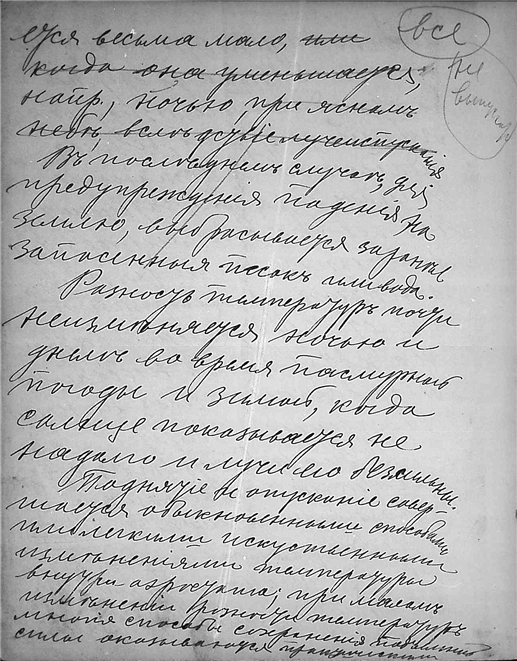 все
не
ется весьма мало, или
когда она уменьшается,
напр., ночью, при ясномъ
небѣ, вслѣдствіе лучеиспусканія
Въ послѣднемъ случаѣ, для
предупрежденія паденія на
землю, выбрасывается заранѣе
запасенный песокъ или вода.
Разность температуръ почти
неизмѣняется ночью и
днемъ во время пасмурной
погоды и зимой, когда
солнце показывается не
надолго и лучи его безсильны.
Поднятіе и опусканіе совер-
шается обыкновенными способами
или легкими искуственными
измѣненіями температуры
внутри аэростата; при маломъ
измѣненіи разности температуръ
многія способы сохраненія подъемной
силы оказываются